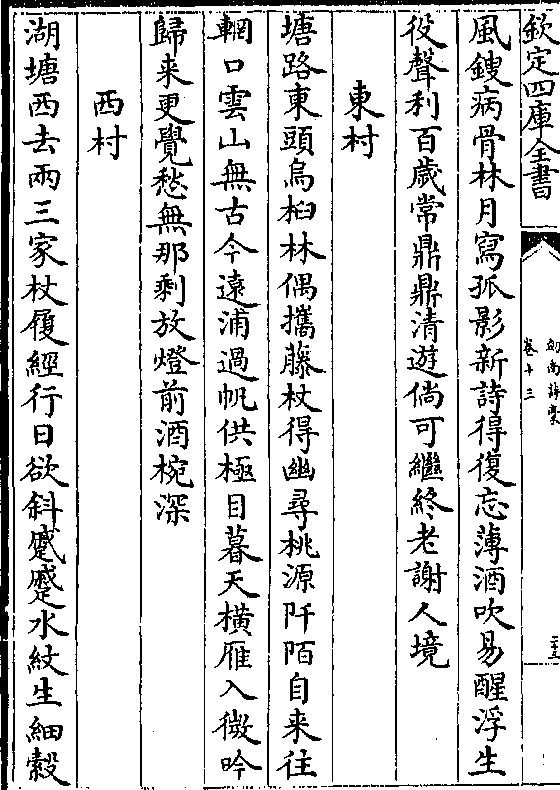 欽定四庫全書
劍南詩稾
卷十三
二十三
風鎪病骨林月寫孤影新詩得復忘薄酒吹易醒浮生
役聲利百歲常鼎鼎清遊倘可繼終老謝人境
東村
塘路東頭烏桕林偶攜藤杖得幽尋桃源阡陌自来往
輞口雲山無古今遠浦過帆供極目暮天横雁入微吟
歸来更覺愁無那剩放燈前酒椀深
西村
湖塘西去兩三家杖履經行日欲斜蹙蹙水紋生細縠